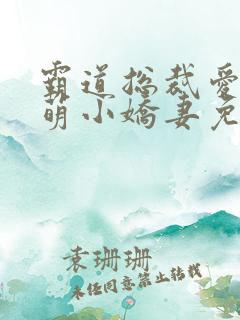 霸道总裁爱
萌小娇妻免
袁珊珊
未经同意禁止转载